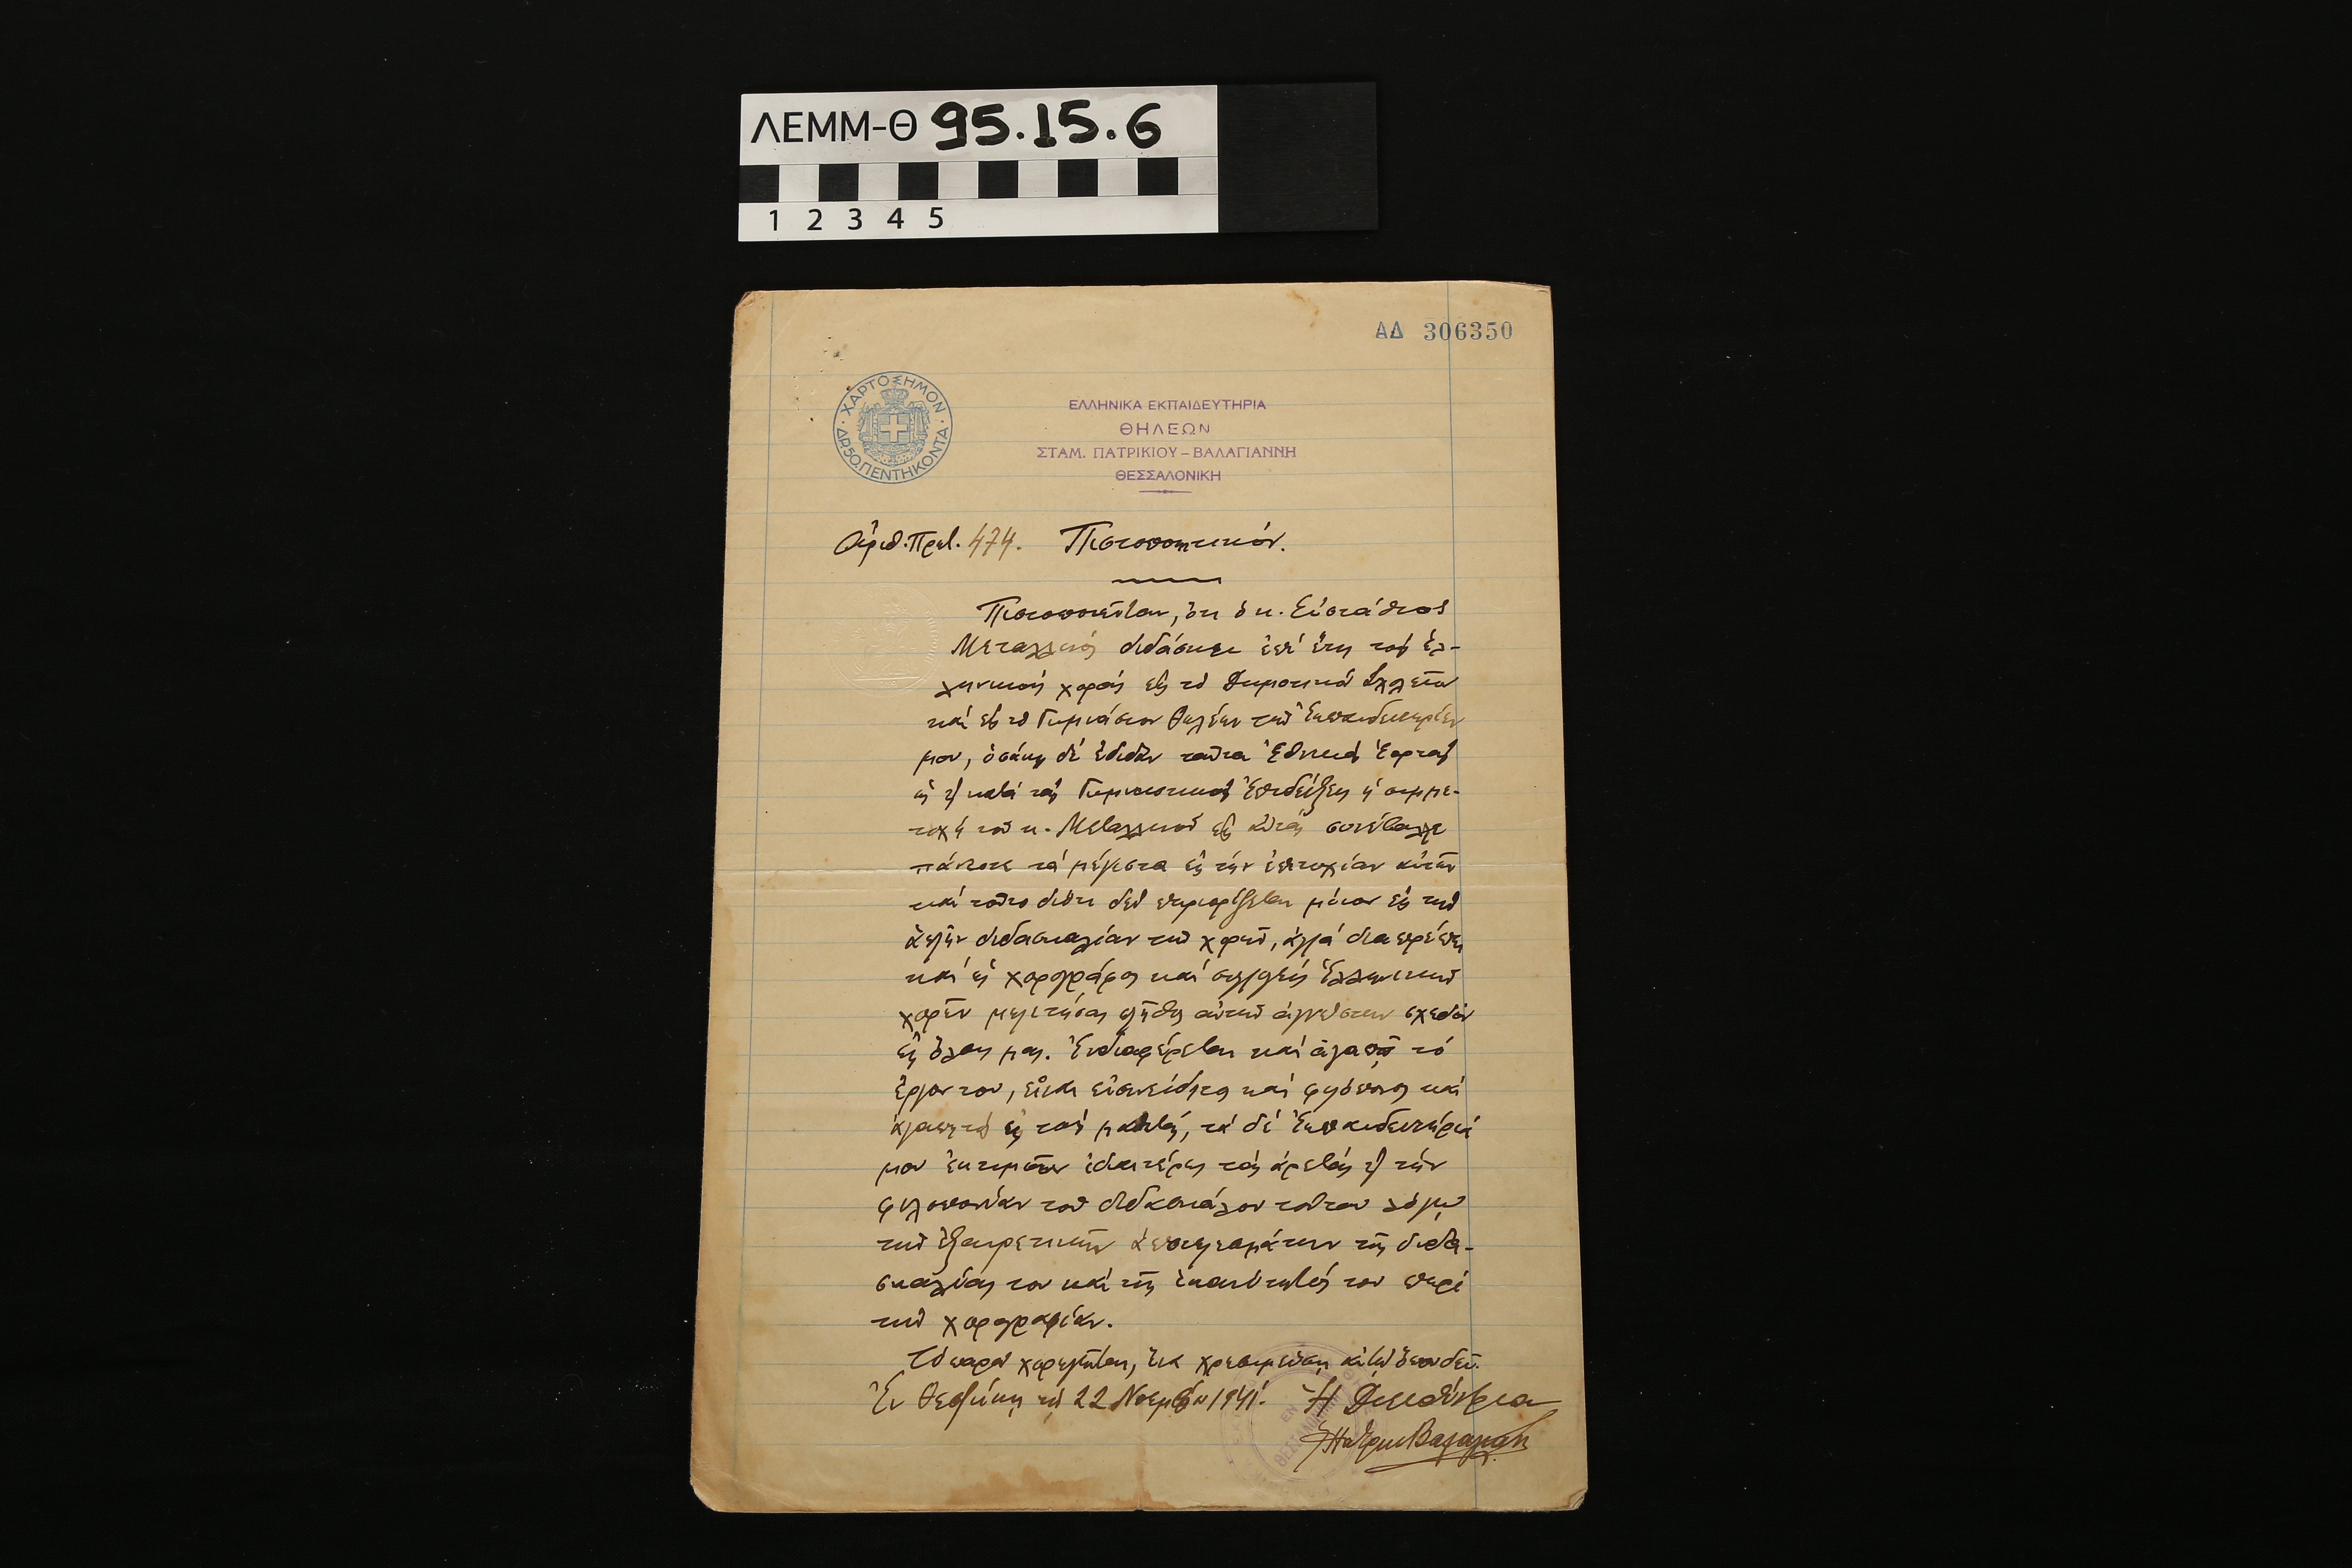 ΛΕΜΜ-Θ 95.15.6
1 2 3 4 5
ΑΔ 306350
ΧΑΡΤΟΣΗΜΟΝ
ΔΡ.50.ΠΕΝΤΗΚΟΝΤΑ
ΕΛΛΗΝΙΚΑ ΕΚΠΑΙΔΕΥΤΗΡΙΑ
ΘΗΛΕΩΝ
ΣΤΑΜ. ΠΑΤΡΙΚΙΟΥ – ΒΑΛΑΓΙΑΝΝΗ
ΘΕΣΣΑΛΟΝΙΚΗ
Ἀριθ. Πρωτ. 474. Πιστοποιητικόν.
Πιστοποιεῖται, ὅτι ὁ κ. Εὐστάθιος
Μεταλλινός διδάσκει ἐπί ἔτη τούς ἑλ-
ληνικούς χορούς εἰς τό Δημοτικόν Σχολεῖον
καί εἰς τό Γυμνάσιον Θηλέων τῶν Ἐκπαιδευτηρίων
μου, ὁσάκις δέ ἐδίδον ταῦτα Ἐθνικάς Ἑορτάς
ὡς καί κατά τάς Γυμναστικάς Ἐπιδείξεις ἡ συμμε-
τοχή τοῦ κ. Μεταλλινοῦ εἰς αὐτάς συνέβαλλε
πάντοτε τά μέγιστα εἰς τήν ἐπιτυχίαν αὐτῶν
καί τοῦτο διότι δέν περιορίζεται μόνον εἰς τήν
ἁπλῆν διδασκαλίαν τῶν χορῶν, ἀλλά διαπρέπει
καί ὡς χορογράφος καί συλλογεύς Ἑλληνικῶν
χορῶν μελετήσας πλῆθος αὐτῶν ἀγνώστων σχεδόν
εἰς ὅλους μας. Ἐνδιαφέρεται καί ἀγαπᾷ τό
ἔργον του, εἶναι εὐσυνείδητος καί φιλόπονος καί
ἀγαπητός εἰς τούς μαθητάς, τά δέ Ἐκπαιδευτήριά
μου ἐκτιμοῦν ἰδιαιτέρως τάς ἀρετάς καί τήν
φιλοπονίαν τοῦ διδασκάλου τούτου λόγῳ
τῶν ἐξαιρετικῶν ἀποτελεσμάτων τῆς διδα-
σκαλίας του καί τῆς ἱκανότητός του περί
τήν χορογραφίαν.
Τό παρόν χορηγεῖται, ἵνα χρησιμεύσῃ αὐτῷ ὅπου δεῖ.
Ἐν Θεσ/νίκῃ τῇ 22 Νοεμβρίου 1941. Ἡ Διευθύντρια
Σ Πατρικ Βαλαγιάννη
ΕΝ
ΘΕΣΣΑΛΟΝΙΚΗ